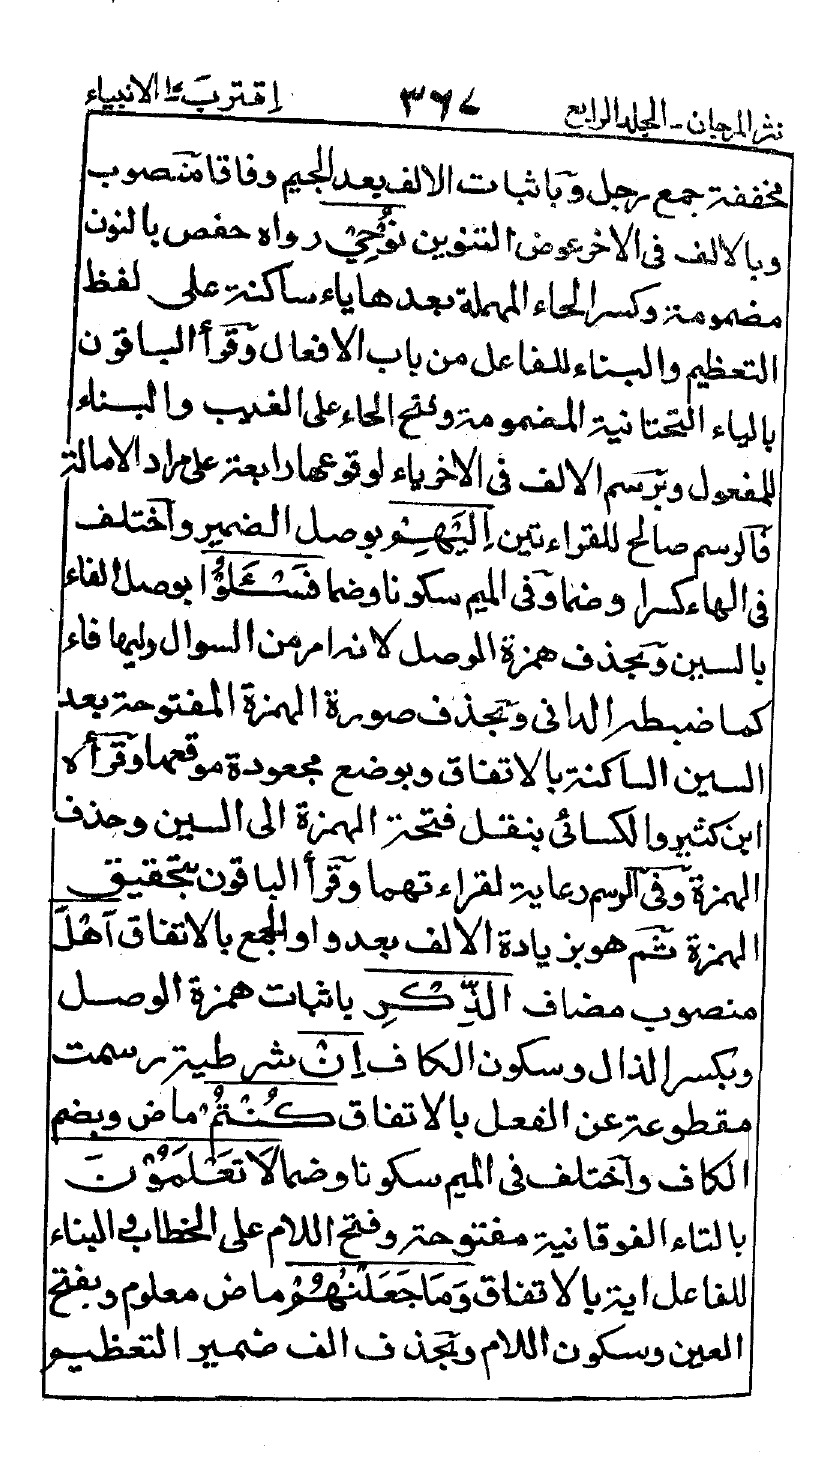 نثر المرجان - المجلد الرابع ٣٦٧ اقترب الانبياء
مخففة جمع رجل وباثبات الالف بعد الجيم وفاقا منصوب
وبالالف فى الاخر عوض التنوين نُوْحِيْ رواه حفص بالنون
مضمومة وكسر الحاء المهملة بعدها ياء ساكنة على لفظ
التعظيم والبناء للفاعل من باب الافعال وقرأ الباقون
بالياء التحتانية المضمومة وفتح الحاء على الغيب والبناء
للمفعول وبرسم الالف فى الاخر ياء لوقوعها رابعة على مراد الامالة
فالرسم صالح للقراءتين اِلَيْهِمْ بوصل الضمير واختلف
فى الهاء كسرا وضما وفى الميم سكونا وضما فَسْـَٔلُوْٓا بوصل الفاء
بالسين وبحذف همزة الوصل لانه امر من السوال وليها فاء
كما ضبطه الدانى وبحذف صورة الهمزة المفتوحة بعد
السين الساكنة بالاتفاق وبوضع مجعودة موقعها وقرأه
ابن كثير والكسائى بنقل فتحة الهمزة الى السين وحذف
الهمزة وفى الرسم رعاية لقراءتهما وقرأ الباقون بتحقيق
الهمزة ثم هو بزيادة الالف بعد واو الجمع بالاتفاق اَهْلَ
منصوب مضاف الذِّكْرِ باثبات همزة الوصل
وبكسر الذال وسكون الكاف اِنْ شرطية رسمت
مقطوعة عن الفعل بالاتفاق كُنْتُمْ ماض وبضم
الكاف واختلف فى الميم سكونا وضما لَا تَعْلَمُوْنَ
بالتاء الفوقانية مفتوحة وفتح اللام على الخطاب والبناء
للفاعل اية بالاتفاق وَمَا جَعَلْنٰهُمْ ماض معلوم وبفتح
العين وسكون اللام وبحذف الف ضمير التعظيم